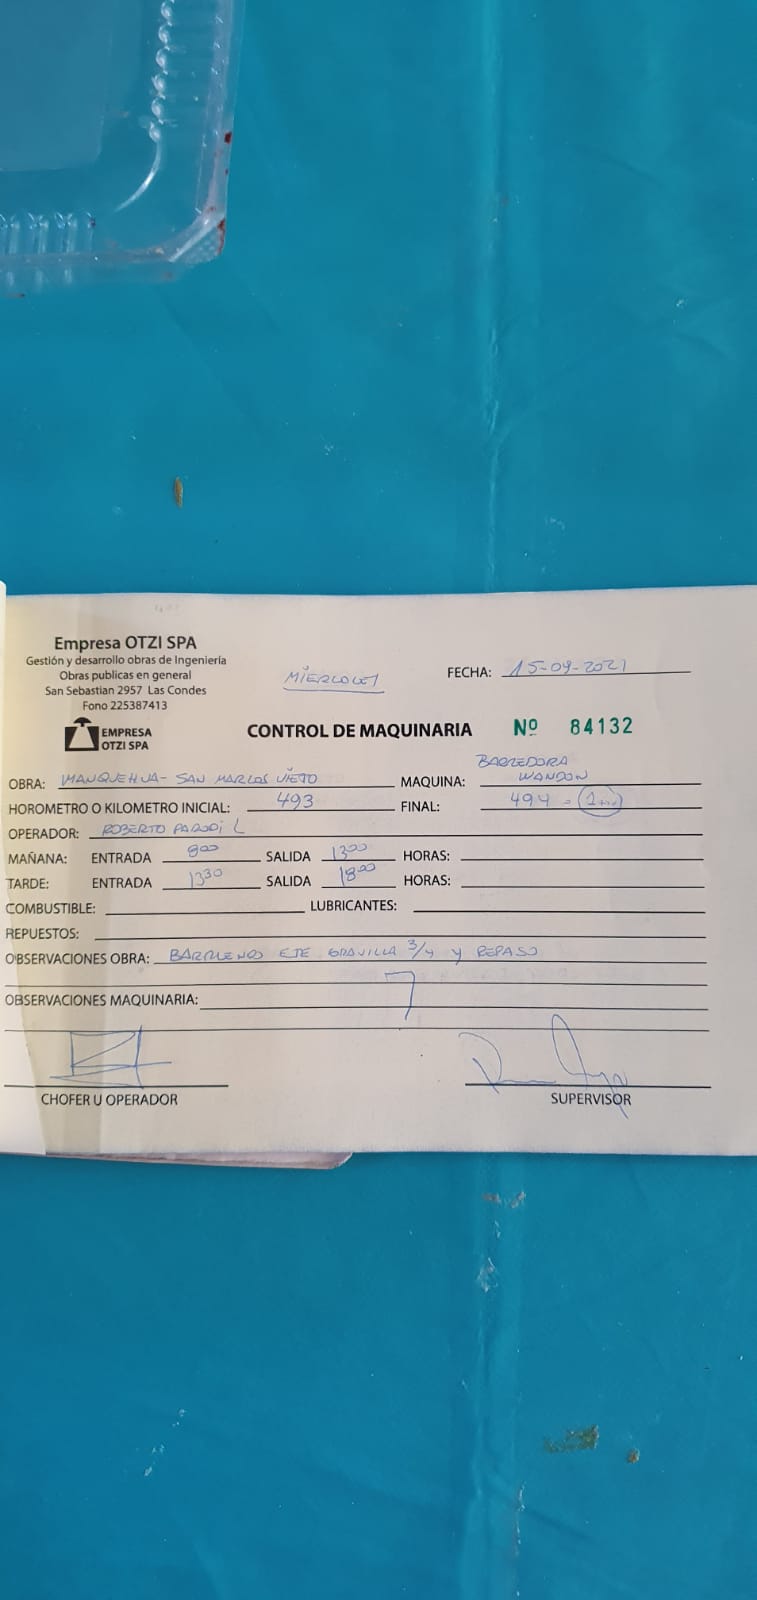 Empresa OTZI SPA
Gestión y desarrollo obras de Ingeniería
Obras publicas en general
San Sebastian 2957 Las Condes
Fono 225387413
EMPRESA
OTZI SPA
MIERCOLES
FECHA: 15-09-2021
CONTROL DE MAQUINARIA Nº 84132
OBRA: MANQUEHUA - SAN MARCOS VIEJO
MAQUINA: BARREDORA
HOROMETRO O KILOMETRO INICIAL: 493
FINAL: 494 =
OPERADOR: ROBERTO PARODI L
MAÑANA: ENTRADA 800 SALIDA 1300 HORAS:
TARDE: ENTRADA 1330 SALIDA 1800 HORAS:
COMBUSTIBLE: LUBRICANTES:
REPUESTOS:
OBSERVACIONES OBRA: EJE GRAVILLA 3/4 Y REPASO
OBSERVACIONES MAQUINARIA:
CHOFER U OPERADOR
SUPERVISOR